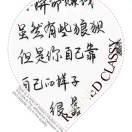 拼命赚钱
虽然有些狼狈
但是你自己靠
自己的样子
很美
D CLASSY